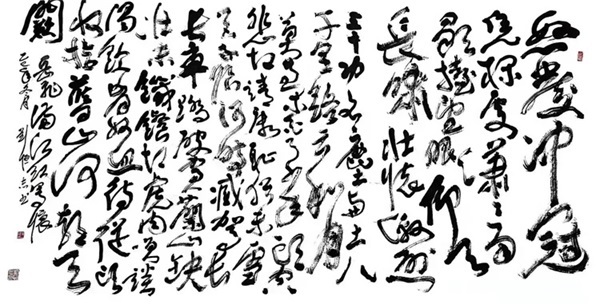 怒發冲冠
凭栏處瀟瀟雨
歇抬望眼仰天
長嘯壯懷激烈
三十功名塵與土八
千里路雲和月
莫等閑白了少年頭空
悲切靖康耻猶未雪
臣子恨何時滅駕長
車踏破賀蘭山缺
壯志飢餐胡虜肉笑談
渴飲匈奴血待從頭
收拾舊山河朝天
闕
岳飛滿江紅寫懷
年冬月 劉 书